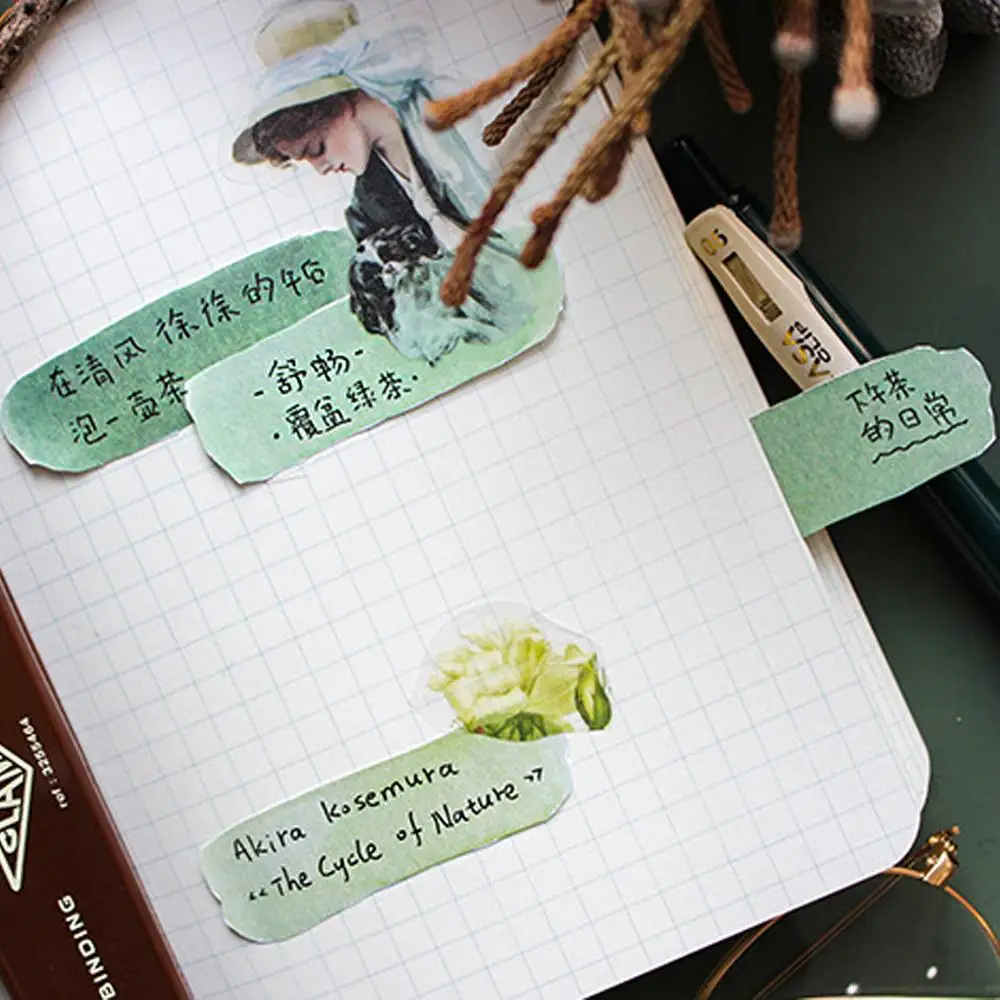 在清风徐徐的午后
泡一壶茶
-舒畅-
·覆盆绿茶·
下午茶
的日常
Akira Kosemura
“The Cycle of Nature”
ref : 3255464
CLAI
BINDING
05